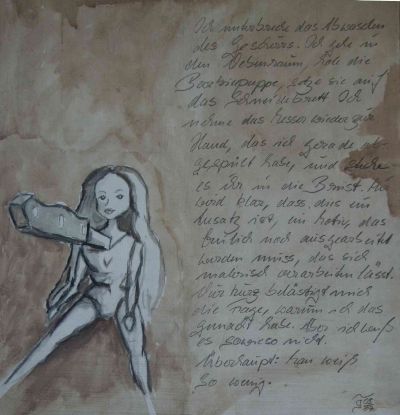 Ich unterbreche das Abwaschen
des Geschirrs. Ich gehe in
den Nebenraum, hole die
Barbiepuppe, setze sie auf
das Schneidebrett. Ich
nehme das Messer wieder zur
Hand, das ich gerade ab-
gespült habe, und steche
es ihr in die Brust. Mir
wird klar, dass dies ein
Ansatz ist, ein Motiv, das
freilich noch ausgearbeitet
werden muss, das sich
malerisch verarbeiten lässt.
Nur kurz belästigt mich
die Frage, warum ich das
gemacht habe. Aber ich weiß
es sowieso nicht.
Überhaupt: man weiß
so wenig.